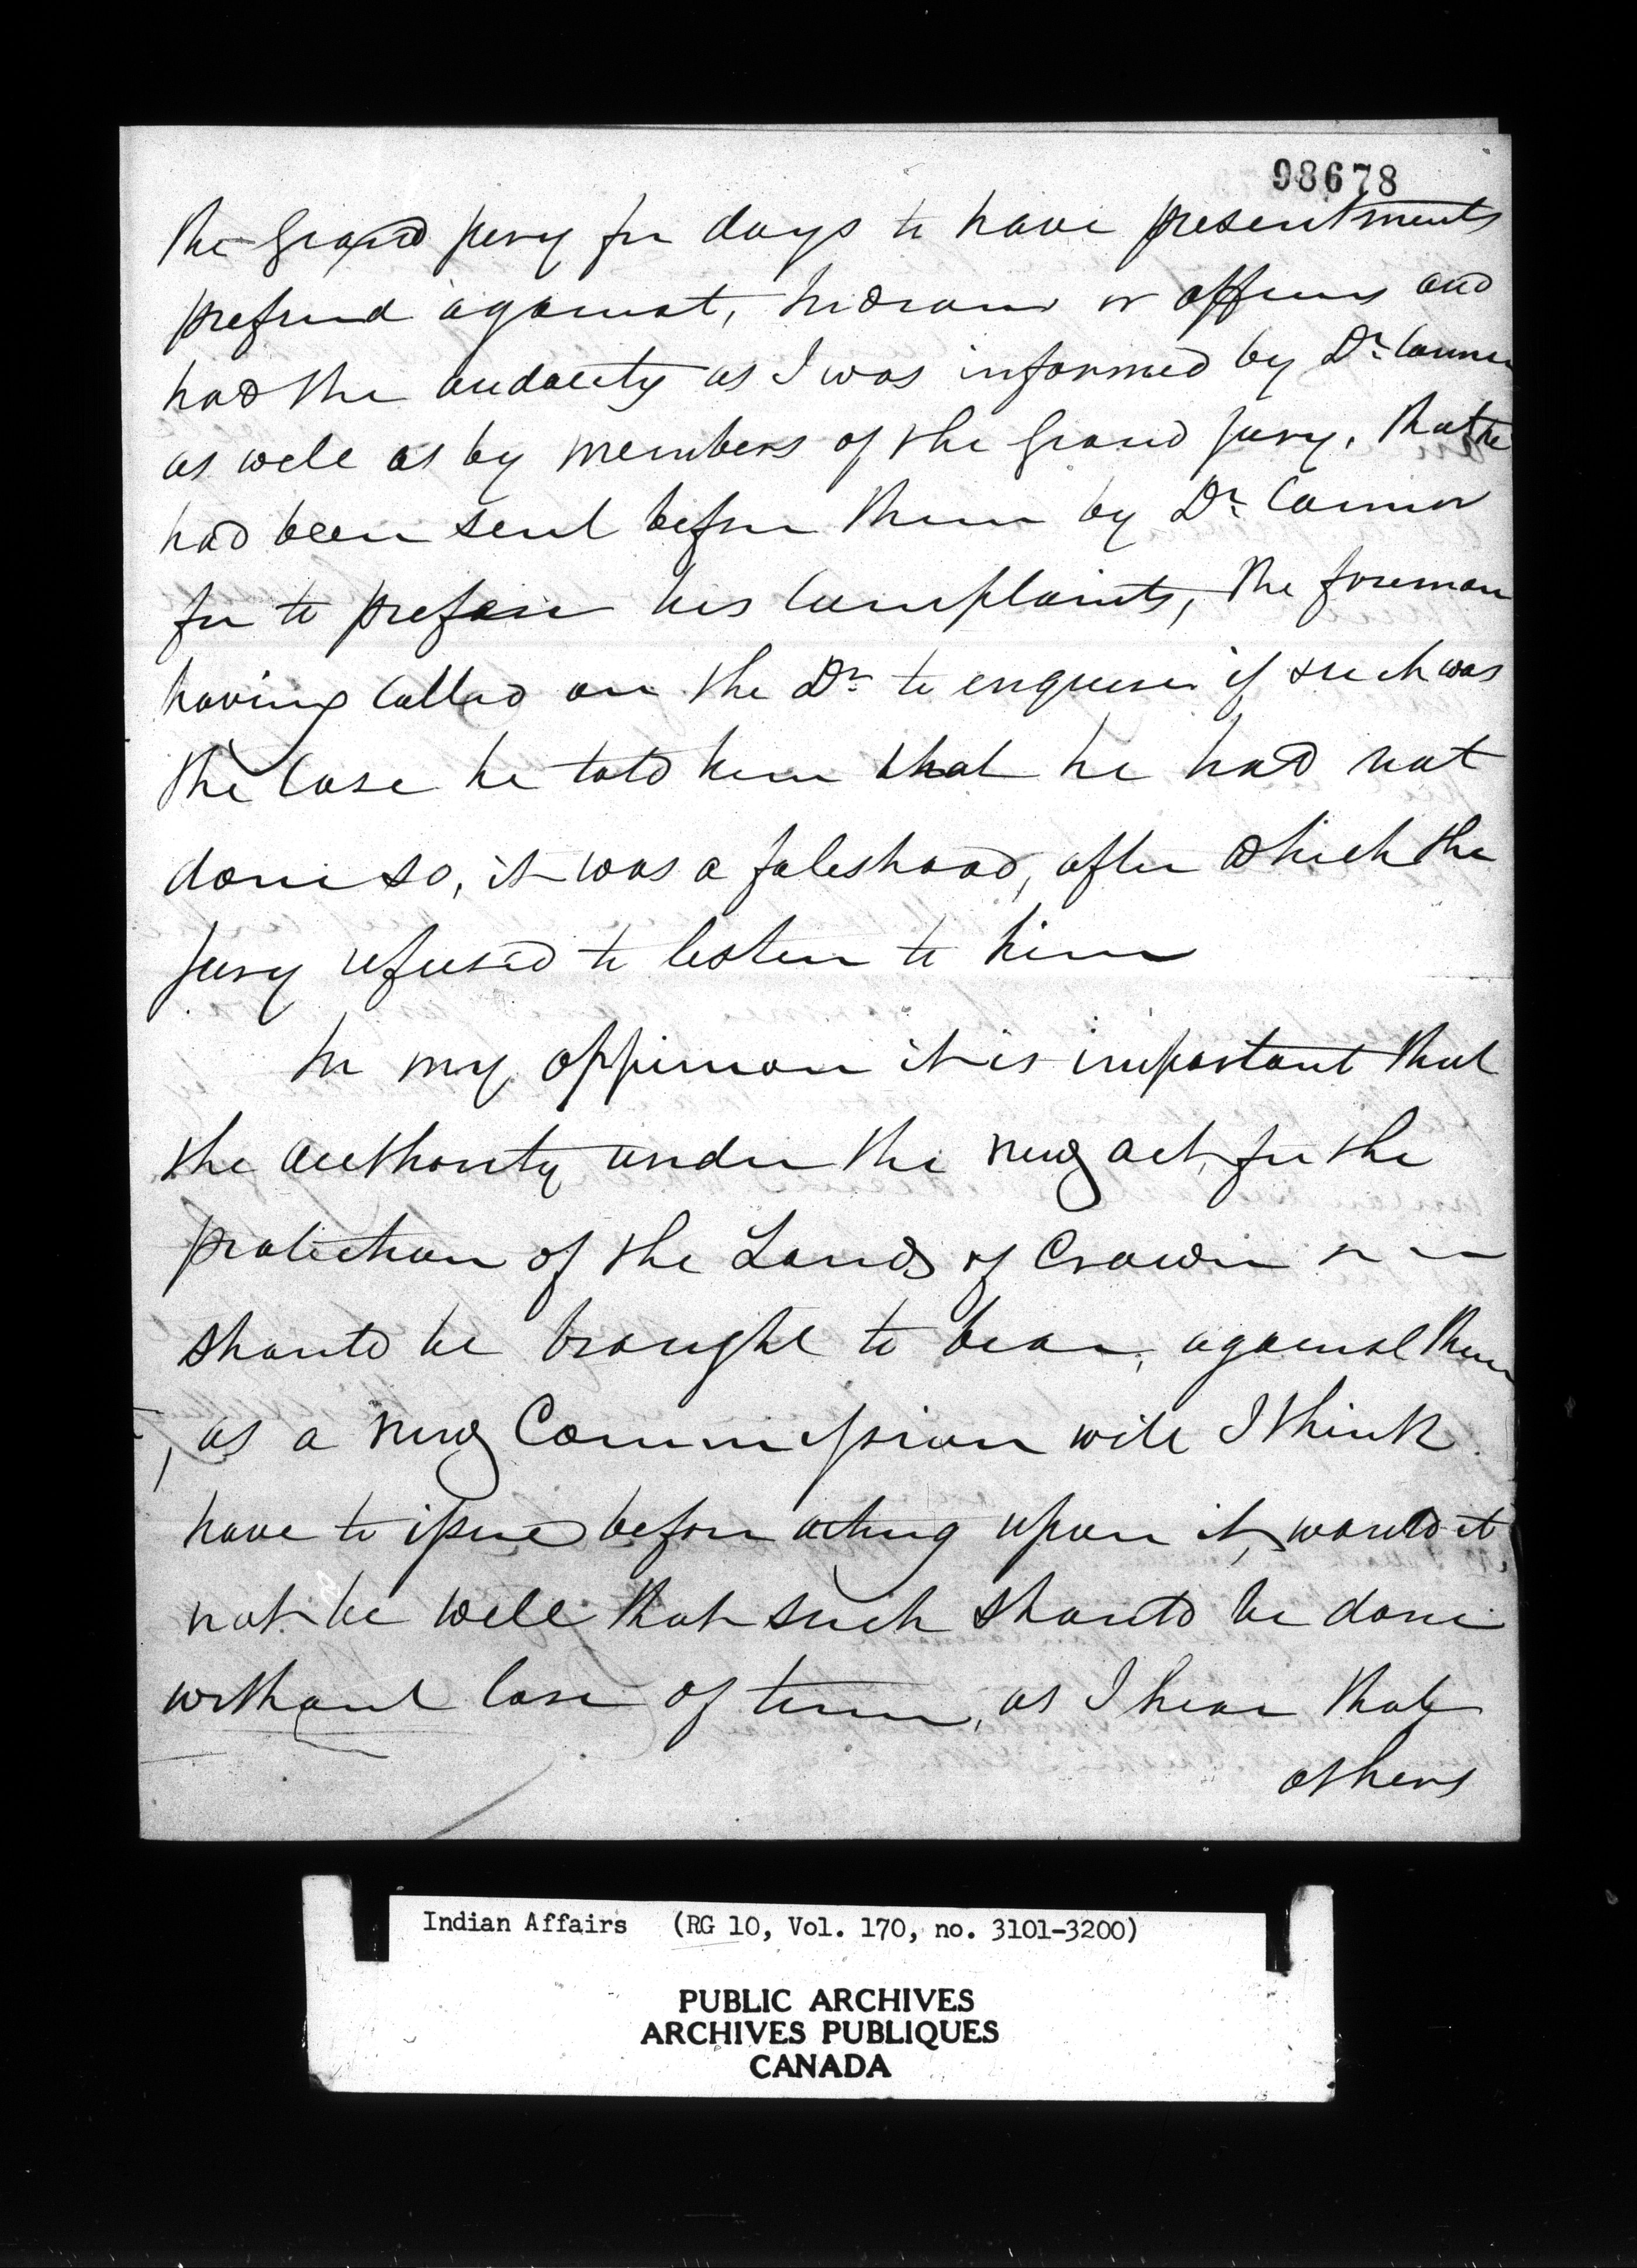 98678
the Grand jury for days to have presentments
prefered against, Indians or officers and
had the audacity as I was informed by Dr. Connor
as well as by members of the Grand jury, that he
had been sent before them by Dr. Connor
for to prefer his Complaints, the foreman
having Called on the Dr. to enquire if such was
the Case he told him that he had not
done so, it was a faleshood, after which the
jury refused to listen to him
In my oppinion it is important that
the authority under the new act for the
protection of the Lands of Crown
should be brought to bear, against them
, as a new Commission will I think
have to issue before acting upon it, would it
not be well that such should be done
without loss of time, as I hear that
others
Indian Affairs (RG 10, Vol. 170, no. 3101-3200)
PUBLIC ARCHIVES
ARCHIVES PUBLIQUES
CANADA